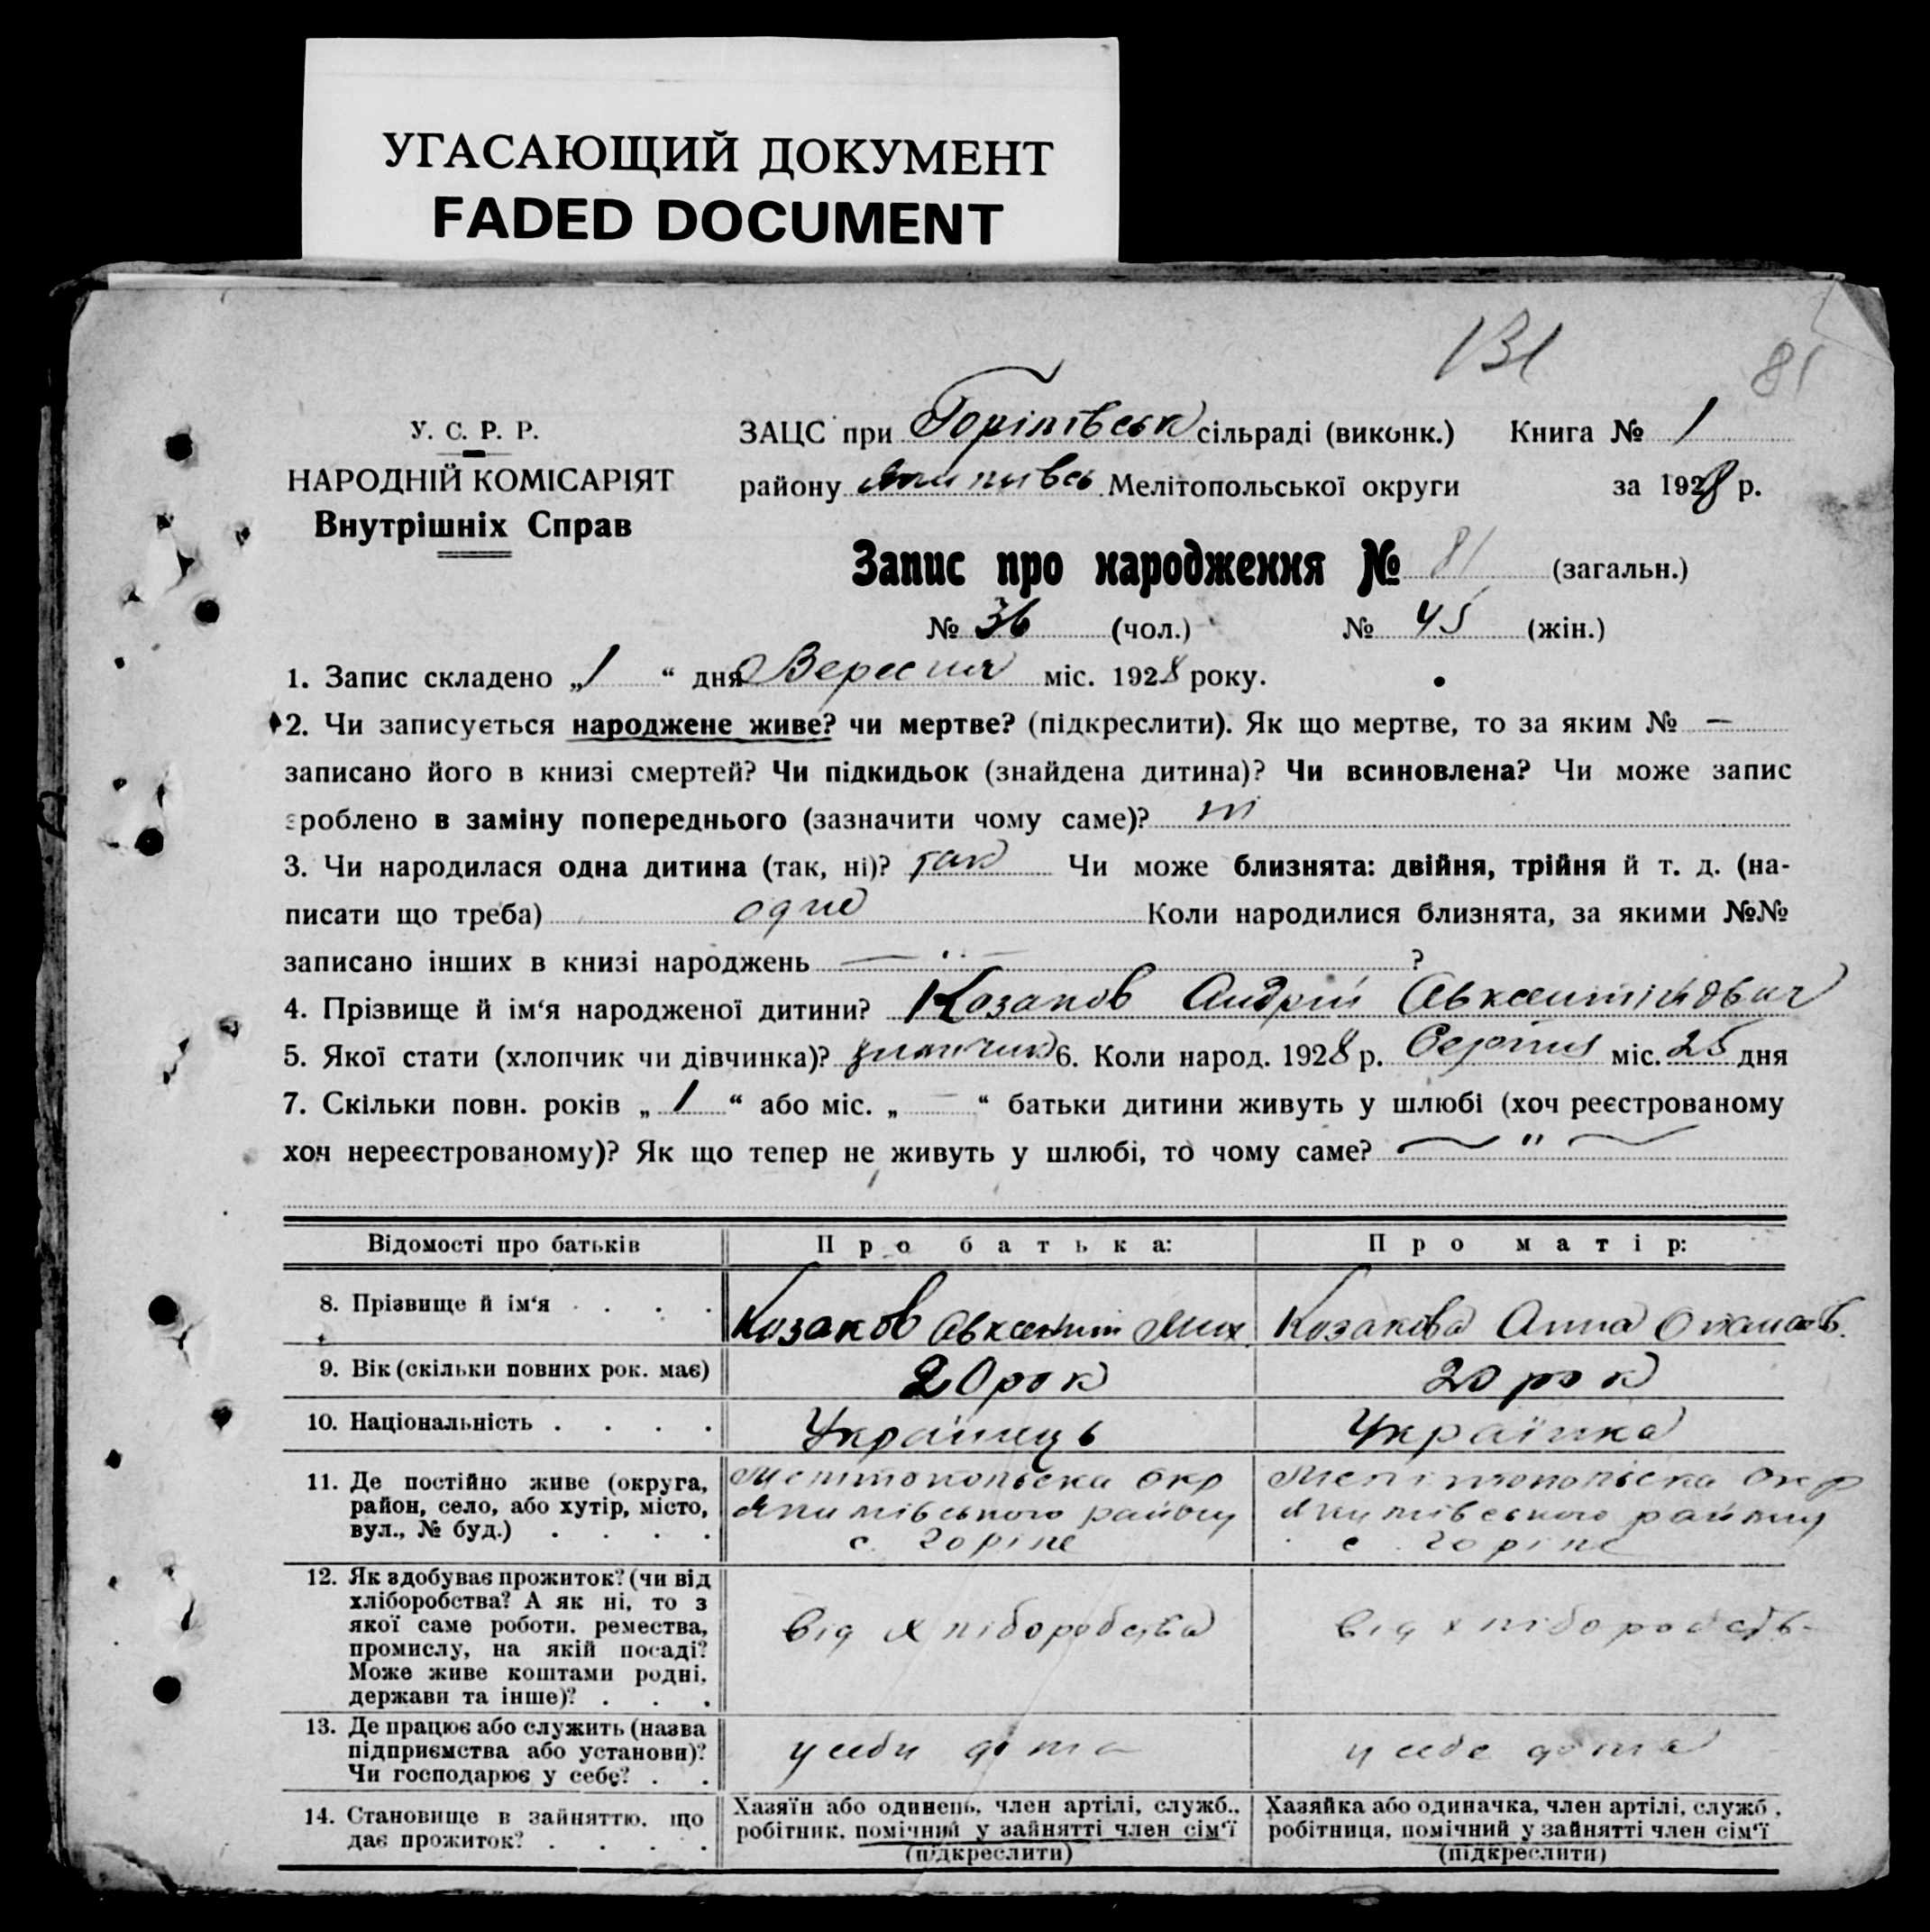 УГАСАЮЩИЙ ДОКУМЕНТ
FADED DOCUMENT
131
81
У. С. Р. Р.
НАРОДНІЙ КОМІСАРІЯТ
Внутрішніх Справ
ЗАЦС при Горінівськ сільраді (виконк.) Книга № 1
району Мелітопольської округи за 1928 р.
Запис про народження № 81 (загальн.)
№ 36 (чол.) № 45 (жін.)
1. Запис складено „1“ дня Вересня міс. 1928 року.
2. Чи записується народжене живе? чи мертве? (підкреслити). Як що мертве, то за яким № —
записано його в книзі смертей? Чи підкидьок (знайдена дитина)? Чи всиновлена? Чи може запис
зроблено в заміну попереднього (зазначити чому саме)? ні
3. Чи народилася одна дитина (так, ні)? так Чи може близнята: двійня, трійня й т. д. (на-
писати що треба) одно Коли народилися близнята, за якими №№
записано інших в книзі народжень — ?
4. Прізвище й ім‘я народженої дитини? Козаков Андрій Авксентійович
5. Якої стати (хлопчик чи дівчинка)? хлопчик 6. Коли народ. 1928 р. Серпня міс. 25 дня
7. Скільки повн. років „1“ або міс. „—“ батьки дитини живуть у шлюбі (хоч реєстрованому
хоч нереєстрованому)? Як що тепер не живуть у шлюбі, то чому саме? — " —
Відомості про батьків Про батька: Про матір:
8. Прізвище й ім‘я . . . . Козаков Авксентій Мих. Козакова Анна
9. Вік (скільки повних рок. має) 20 рок 20 рок
10. Національність . . . . Українець Українка
11. Де постійно живе (округа, Мелітопольска Окр Мелітопольска Окр
район, село, або хутір, місто, Якимівського району Якимівського району
вул., № буд.) . . . . с. Горіне с. Горіне
12. Як здобуває прожиток? (чи від
хліборобства? А як ні, то з
якої саме роботи, ремества, від хліборобства від хліборобств-
промислу, на якій посаді?
Може живе коштами родні,
держави та інше)? . . .
13. Де працює або служить (назва
підприємства або установи)? у себи дома у себе дома
Чи господарює у себе? . .
14. Становище в зайняттю, що Хазяїн або одинець, член артілі, служб., Хазяйка або одиначка, член артілі, служб.,
дає прожиток? . . . . робітник, помічний у зайнятті член сім‘ї робітниця, помічний у зайнятті член сім‘ї
(підкреслити) (підкреслити)